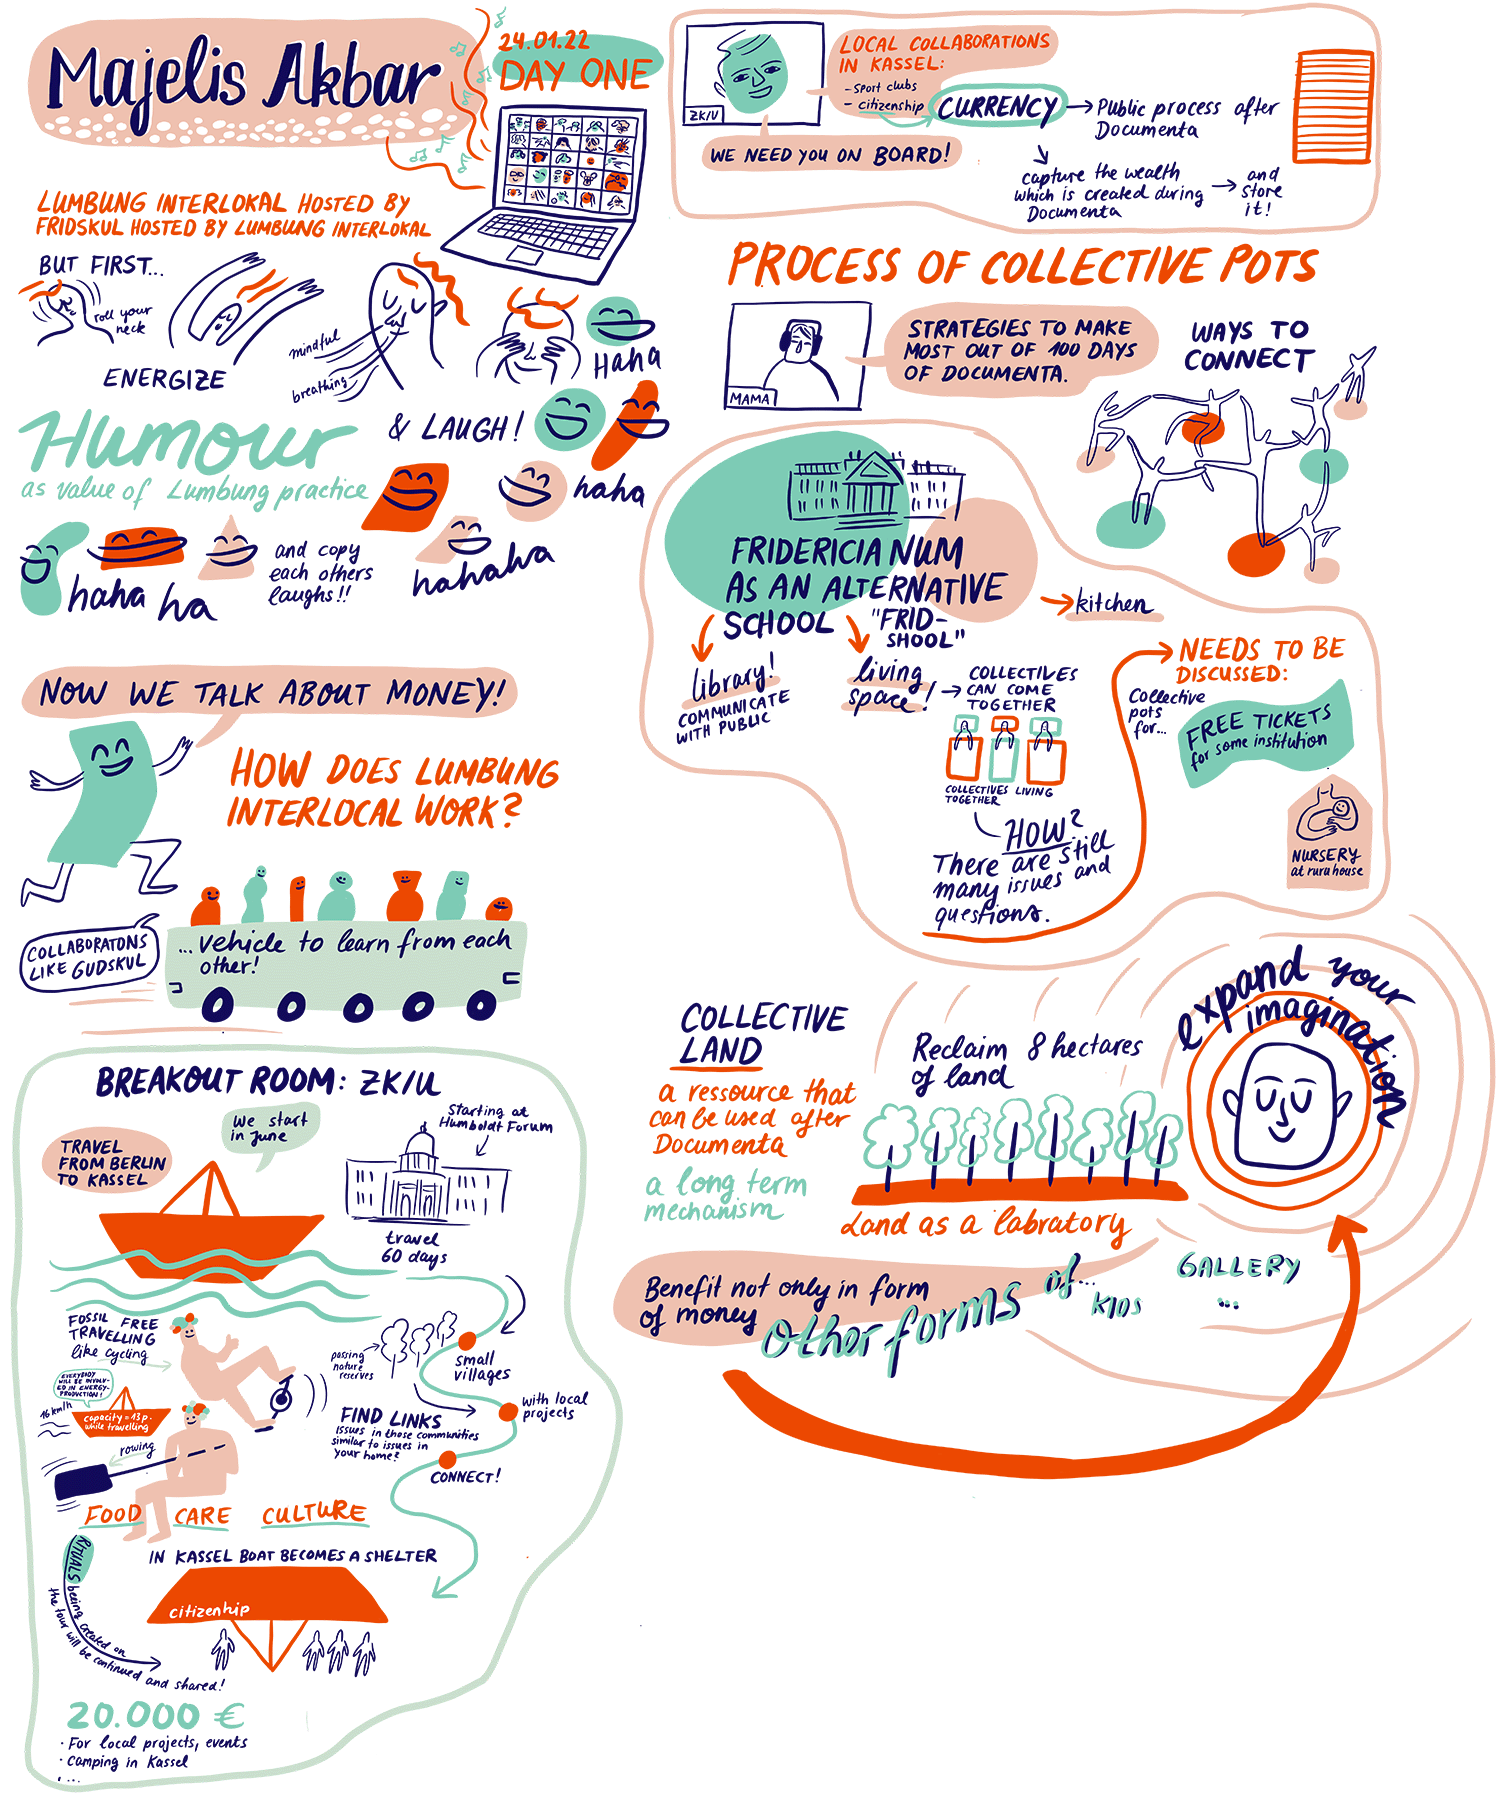 Majelis Akbar
24.01.22
DAY ONE
LUMBUNG INTERLOKAL HOSTED BY
FRIDSKUL HOSTED BY LUMBUNG INTERLOKAL
BUT FIRST...
roll your
neck
ENERGIZE
mindful
breathing
HAHA
& LAUGH!
Humour
as value of Lumbung practice
haha
haha ha
and copy
each others
laughs!!
hahaha
NOW WE TALK ABOUT MONEY!
HOW DOES LUMBUNG
INTERLOCAL WORK?
COLLABORATONS
LIKE GUDSKUL
...vehicle to learn from each
other!
BREAKOUT ROOM: ZK/U
We start
in June
TRAVEL
FROM BERLIN
TO KASSEL
Starting at
Humboldt Forum
travel
60 days
FOSSIL FREE
TRAVELLING
like cycling
EVERYBODY
WILL BE INVOLV-
ED IN ENERGY-
PRODUCTION!
16 km/h
capacity = 13 p.
while travelling
rowing
passing
nature
reserves
small
villages
with local
projects
FIND LINKS
issues in those communities
similar to issues in
your home?
CONNECT!
FOOD CARE CULTURE
IN KASSEL BOAT BECOMES A SHELTER
citizenhip
RITUALS being created on
the tour will be continued and shared!
20.000 €
· For local projects, events
· Camping in Kassel
· ...
ZK/U
LOCAL COLLABORATIONS
IN KASSEL:
- sport clubs
- citizenship
CURRENCY
Public process after
Documenta
WE NEED YOU ON BOARD!
capture the wealth
which is created during
Documenta
and
store
it!
PROCESS OF COLLECTIVE POTS
MAMA
STRATEGIES TO MAKE
MOST OUT OF 100 DAYS
OF DOCUMENTA.
WAYS TO
CONNECT
FRIDERICIANUM
AS AN ALTERNATIVE
SCHOOL
"FRID-
SHOOL"
kitchen
library!
COMMUNICATE
WITH PUBLIC
living
space!
COLLECTIVES
CAN COME
TOGETHER
COLLECTIVES LIVING
TOGETHER
HOW?
There are still
many issues and
questions.
NEEDS TO BE
DISCUSSED:
Collective
pots
for...
FREE TICKETS
for some institution
NURSERY
at ruruhouse
COLLECTIVE
LAND
a ressource that
can be used after
Documenta
a long term
mechanism
Reclaim 8 hectares
of land
Land as a labratory
expand your
imagination
Benefit not only in form
of money
Other forms of...
KIDS
GALLERY
...